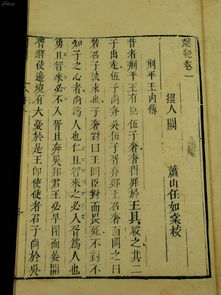 越絕卷一
撰人闕
蕭山任如棠校
荊平王內傳
昔者荊平王有臣伍子奢奢得罪於王且殺之其二
子出走伍子尚奔吳伍子胥奔鄭王召奢而問之曰
若召子孰來也子奢對曰王問臣對而畏死不對不
知子之心者尚為人也仁且智來之必入胥為人也
勇且智來必不入胥且奔吳邦君王必早閉而晏開
胥將使邊境有大憂於是王即使使者召子尚於吳